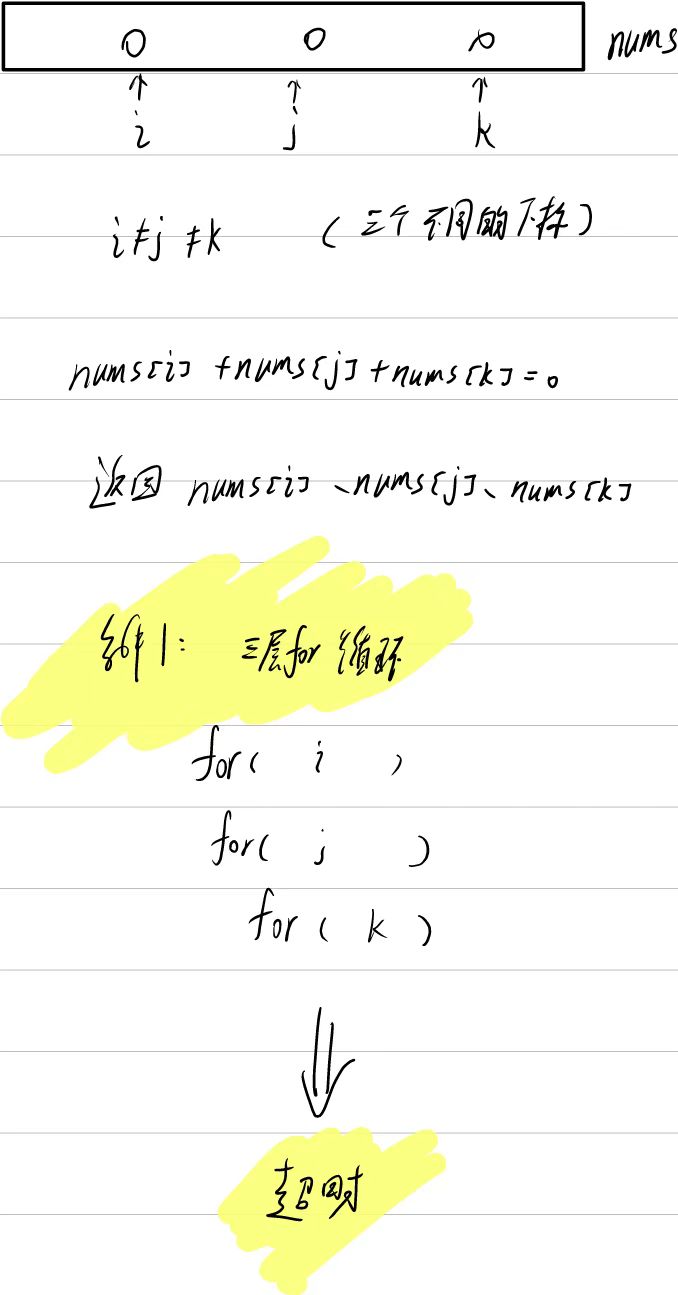 0 0 0 nums
i j k
i≠j≠k (三个不同的下标)
nums[i] +nums[j]+nums[k]=0
返回 nums[i]、nums[j]、nums[k]
解1: 三层for循环
for( i )
for( j )
for( k )
超时